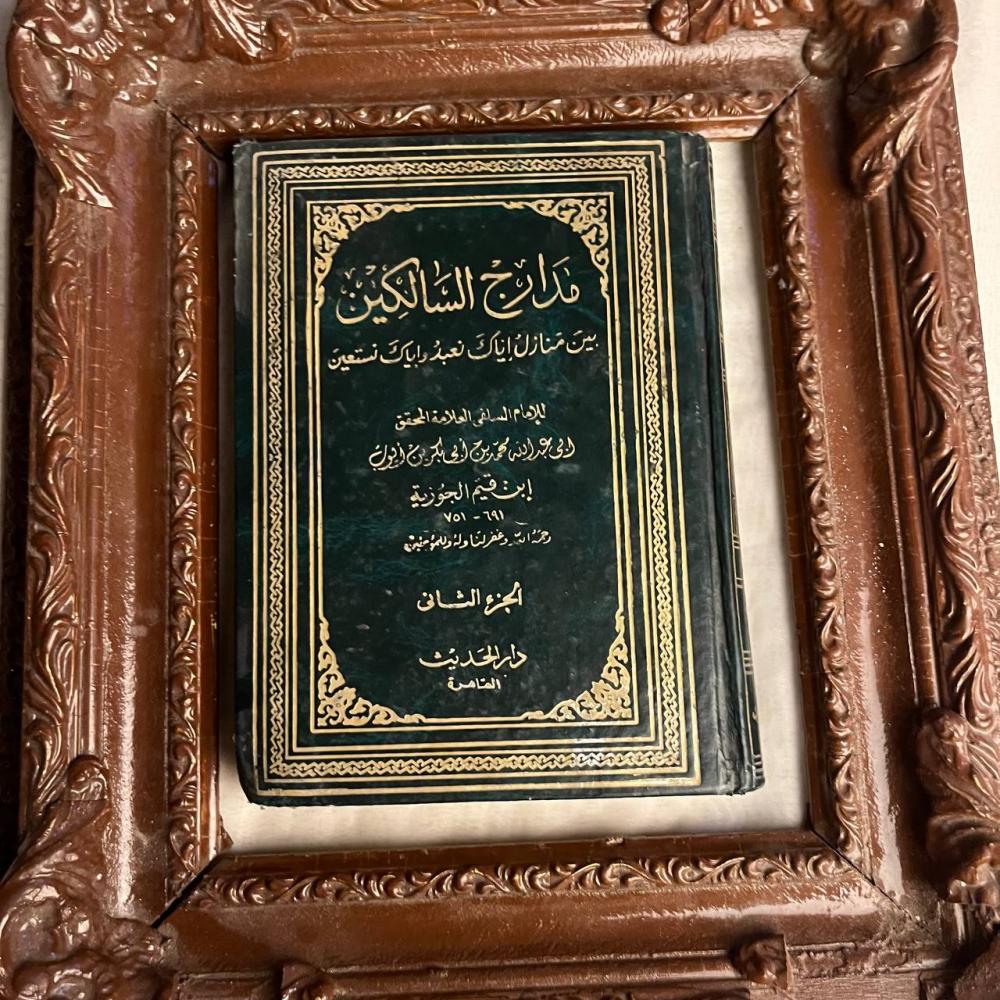 مَدَارِجُ السَّالِكِيْن
بَينَ مَنَازِلِ إِيَّاكَ نَعْبدُ وَإِيَّاكَ نَستَعِينَ
للإمام السلفى العلامة المحقق
أبى عبد الله محمد بن أبى بكر بن أيوب
إبن قيم الجوزية
٦٩١ - ٧٥١
رحمه الله وغفر لنا وله وللمؤمنين
الجزء الثانى
دار الحديث
القاهرة